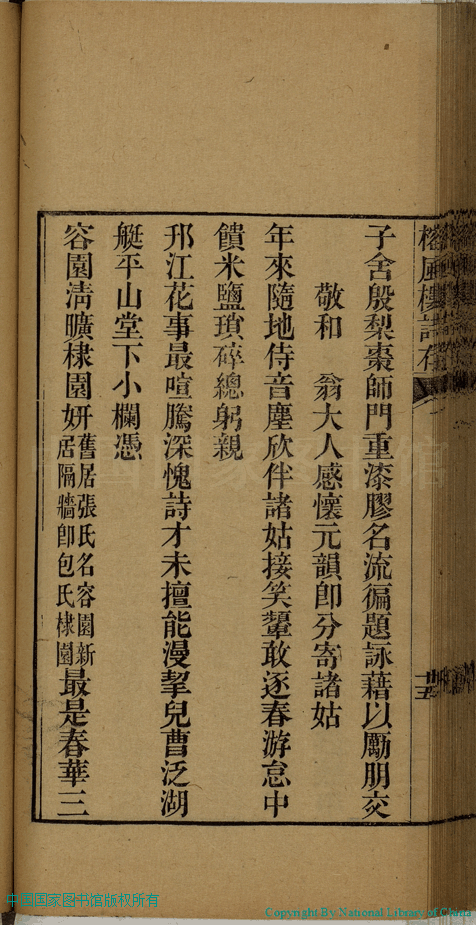 榕風樓詩存
十五
子舍殷梨棗師門重漆膠名流徧題詠藉以勵朋交
敬和　翁大人感懷元韻卽分寄諸姑
年來隨地侍音塵欣伴諸姑接笑顰敢逐春游怠中
饋米鹽瑣碎總躬親
邗江花事最喧騰深愧詩才未擅能漫挈兒曹泛湖
艇平山堂下小欄憑
容園淸曠棣園妍舊居張氏名容園新居隔牆卽包氏棣園最是春華三
中国国家图书馆版权所有
Copyright By National Library of China